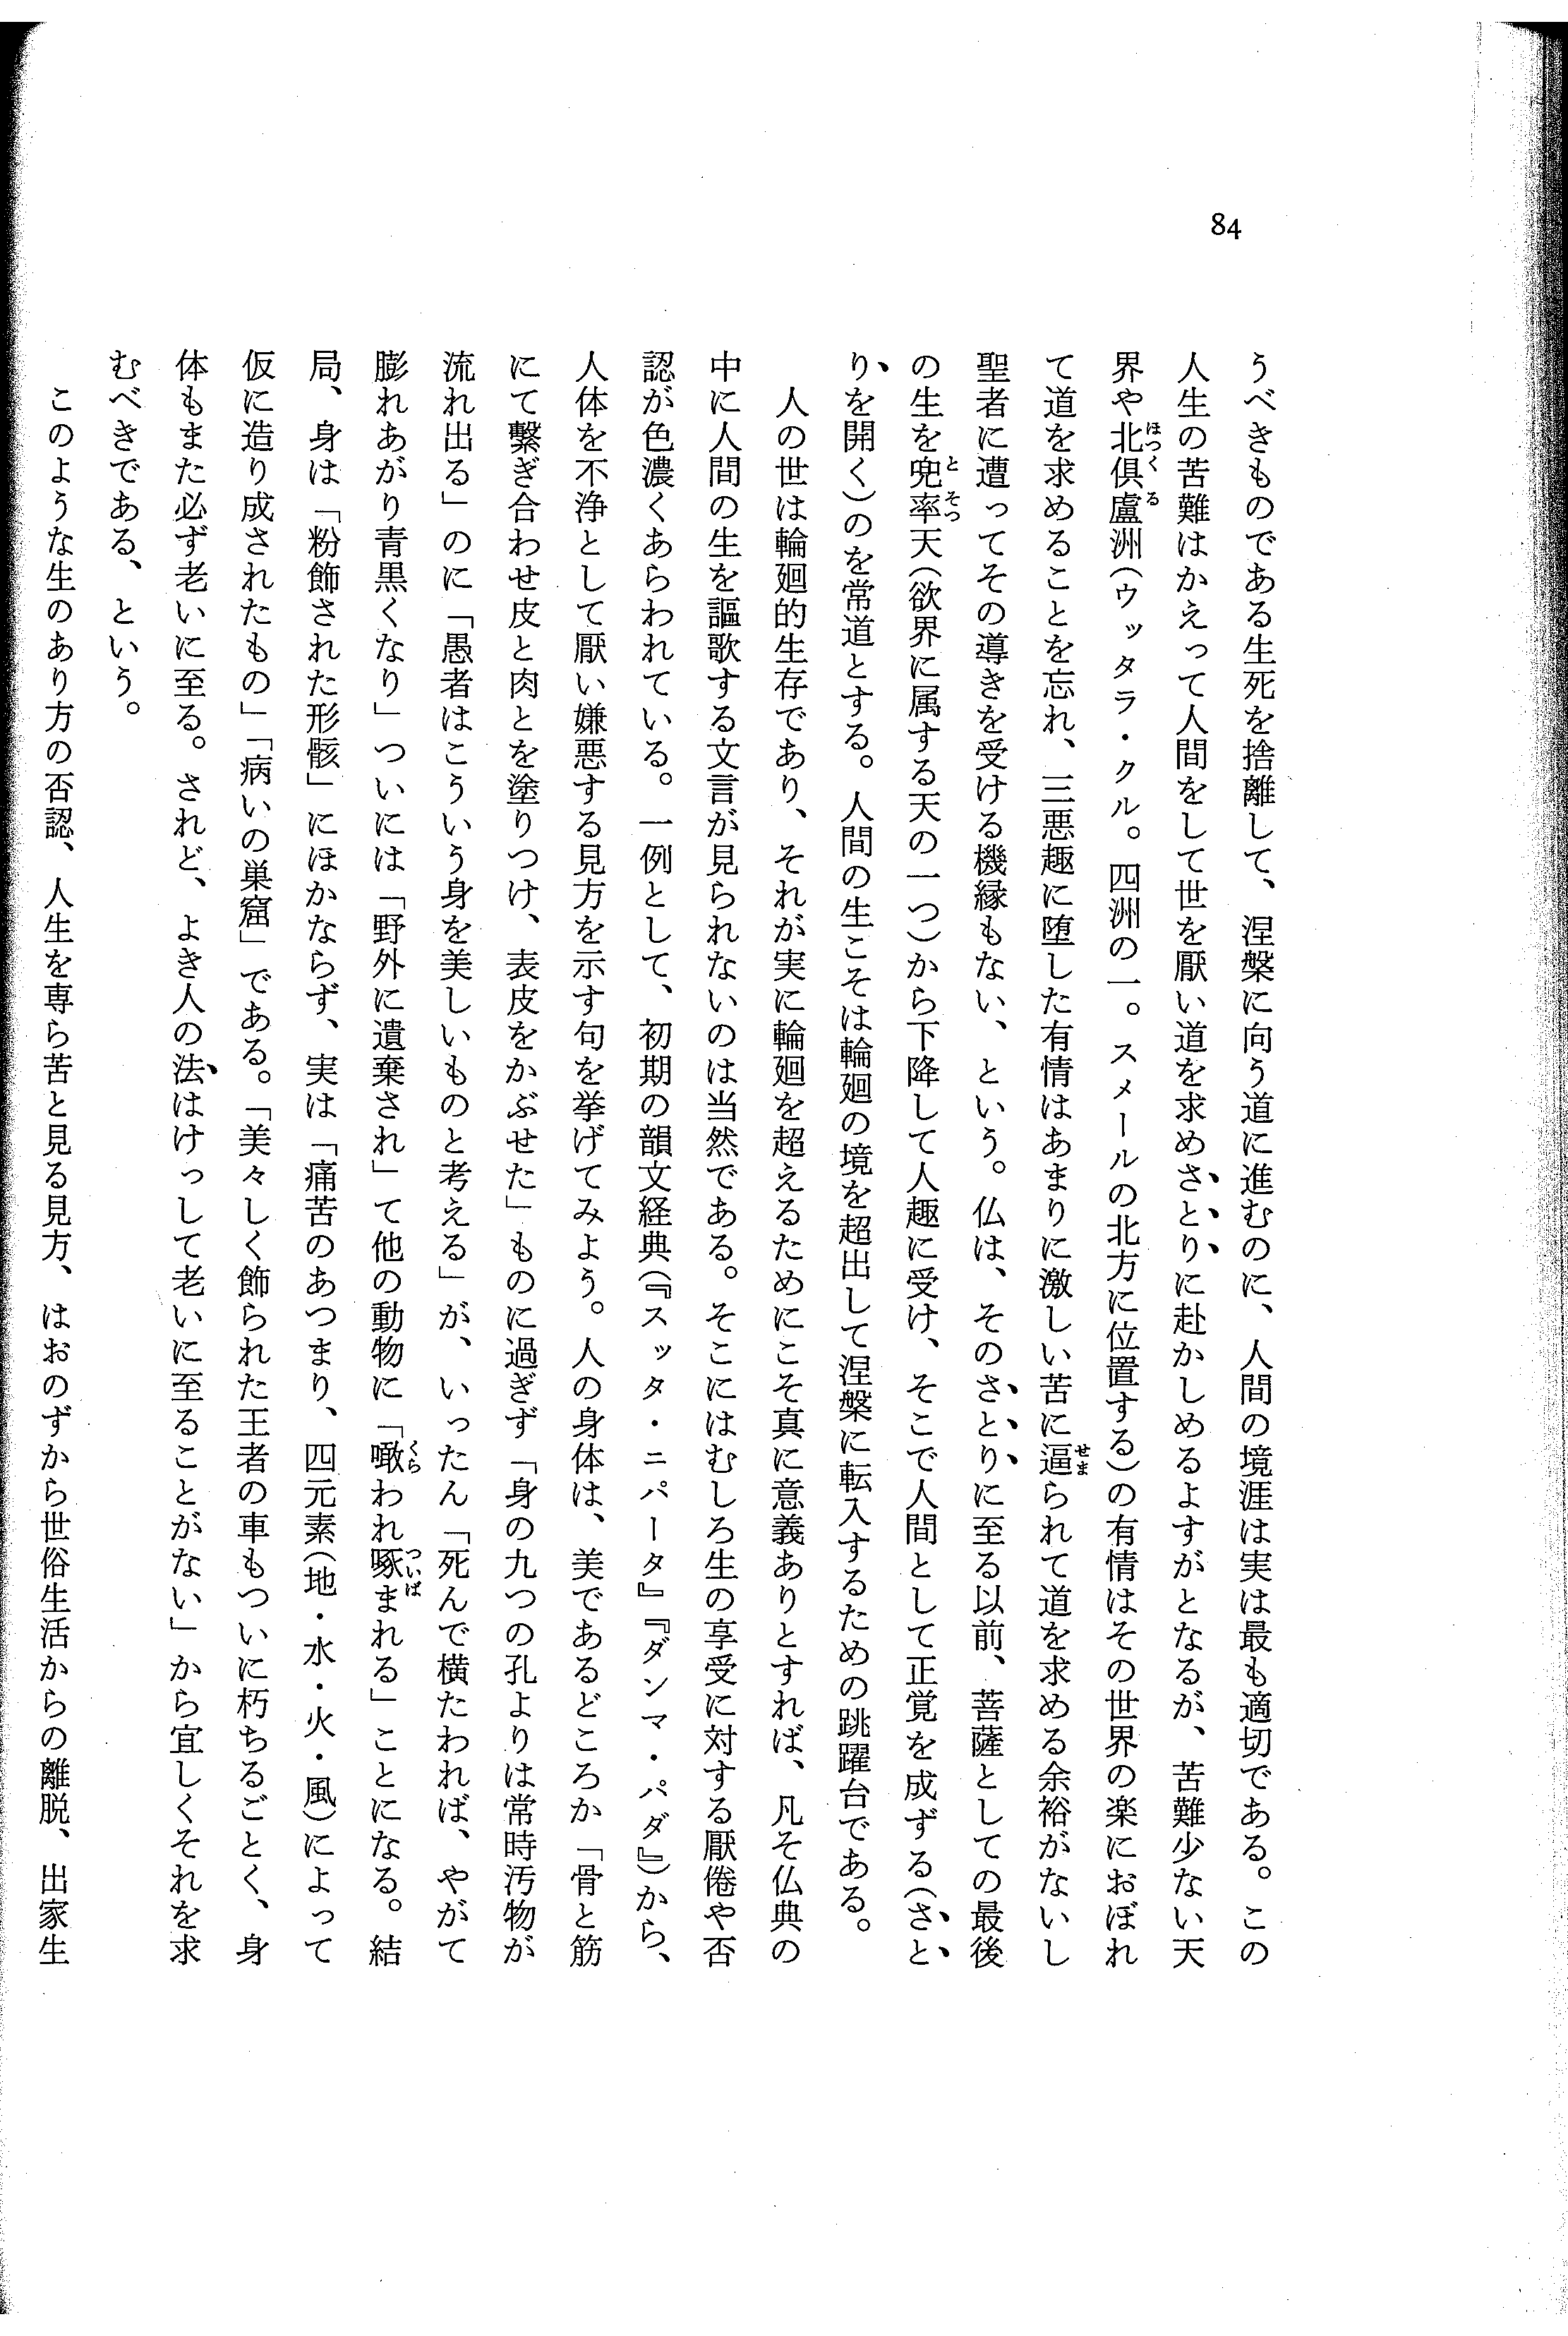 84
うべきものである生死を捨離して、涅槃に向う道に進むのに、人間の境涯は実は最も適切である。この
人生の苦難はかえって人間をして世を厭い道を求めさとりに赴かしめるよすがとなるが、苦難少ない天
界や北倶盧洲(ウッタラ・クル。四洲の一。スメールの北方に位置する)の有情はその世界の楽におぼれ
て道を求めることを忘れ、三悪趣に堕した有情はあまりに激しい苦に逼られて道を求める余裕がないし
聖者に遭ってその導きを受ける機縁もない、という。仏は、そのさとりに至る以前、菩薩としての最後
の生を兜率天(欲界に属する天の一つ)から下降して人趣に受け、そこで人間として正覚を成ずる(さと
りを開く)のを常道とする。人間の生こそは輪廻の境を超出して涅槃に転入するための跳躍台である。
人の世は輪廻的生存であり、それが実に輪廻を超えるためにこそ真に意義ありとすれば、凡そ仏典の
中に人間の生を謳歌する文言が見られないのは当然である。そこにはむしろ生の享受に対する厭倦や否
認が色濃くあらわれている。一例として、初期の韻文経典(『スッタ・ニパータ』『ダンマ・パダ』)から、
人体を不浄として厭い嫌悪する見方を示す句を挙げてみよう。人の身体は、美であるどころか「骨と筋
にて繫ぎ合わせ皮と肉とを塗りつけ、表皮をかぶせた」ものに過ぎず「身の九つの孔よりは常時汚物が
流れ出る」のに「愚者はこういう身を美しいものと考える」が、いったん「死んで横たわれば、やがて
膨れあがり青黒くなり」ついには「野外に遺棄され」て他の動物に「噉われ啄まれる」ことになる。結
局、身は「粉飾された形骸」にほかならず、実は「痛苦のあつまり、四元素(地・水・火・風)によって
仮に造り成されたもの」「病いの巣窟」である。「美々しく飾られた王者の車もついに朽ちるごとく、身
体もまた必ず老いに至る。されど、よき人の法はけっして老いに至ることがない」から宜しくそれを求
むべきである、という。
このような生のあり方の否認、人生を専ら苦と見る見方、はおのずから世俗生活からの離脱、出家生